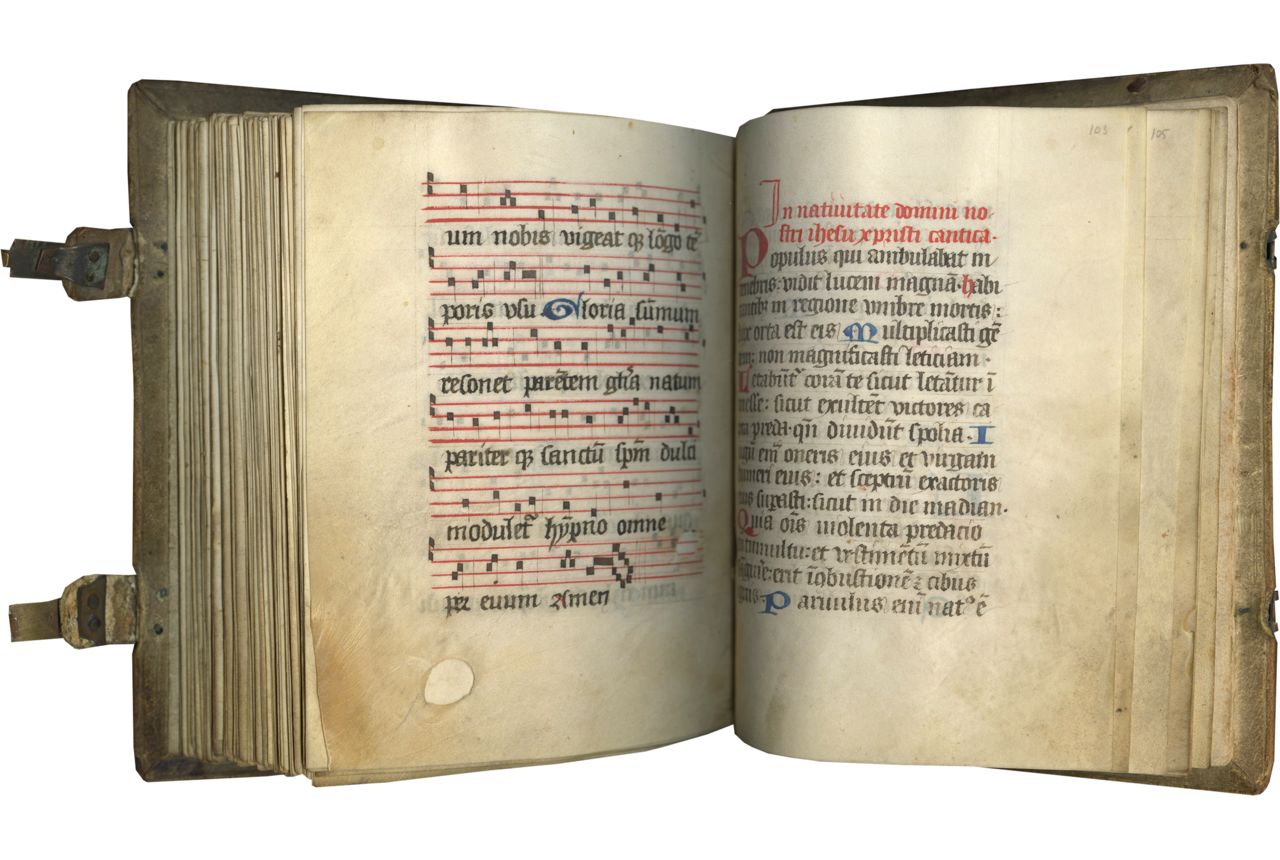 um nobis vigeat qꝫ lōgo tē
poris vsu Gloria sūmum
resonet parētem gl̄ia natum
pariter qꝫ sanctū sp̄m dulci
modulet᷑ hẏpno omne
per euum Amen
103
105
In natiuitate domini no
stri ihesu xpristi cantica.
Populus qui ambulabat in
tenebris: vidit lucem magnā. habi
tantibꝫ in regione vmbre mortis:
lux orta est eis Multiplicasti gē
tem: non magnificasti leticiam.
Letabūt᷑ corā te sicut letāt᷑ur ī
messe: sicut exultēt victores ca
pta preda. qn̄ diuidūt spolia. I
ugū em̄ oneris eius et virgam
humeri eius: et sceptrū exactoris
eius suꝑasti: sicut in die madian.
Quia oīs violenta predacio
tumultu: et vestimētū mixtū
sanguīe: erit ī ↄbustionē ⁊ cibus
ignis. Paruulus em̄ nat᷒ ē